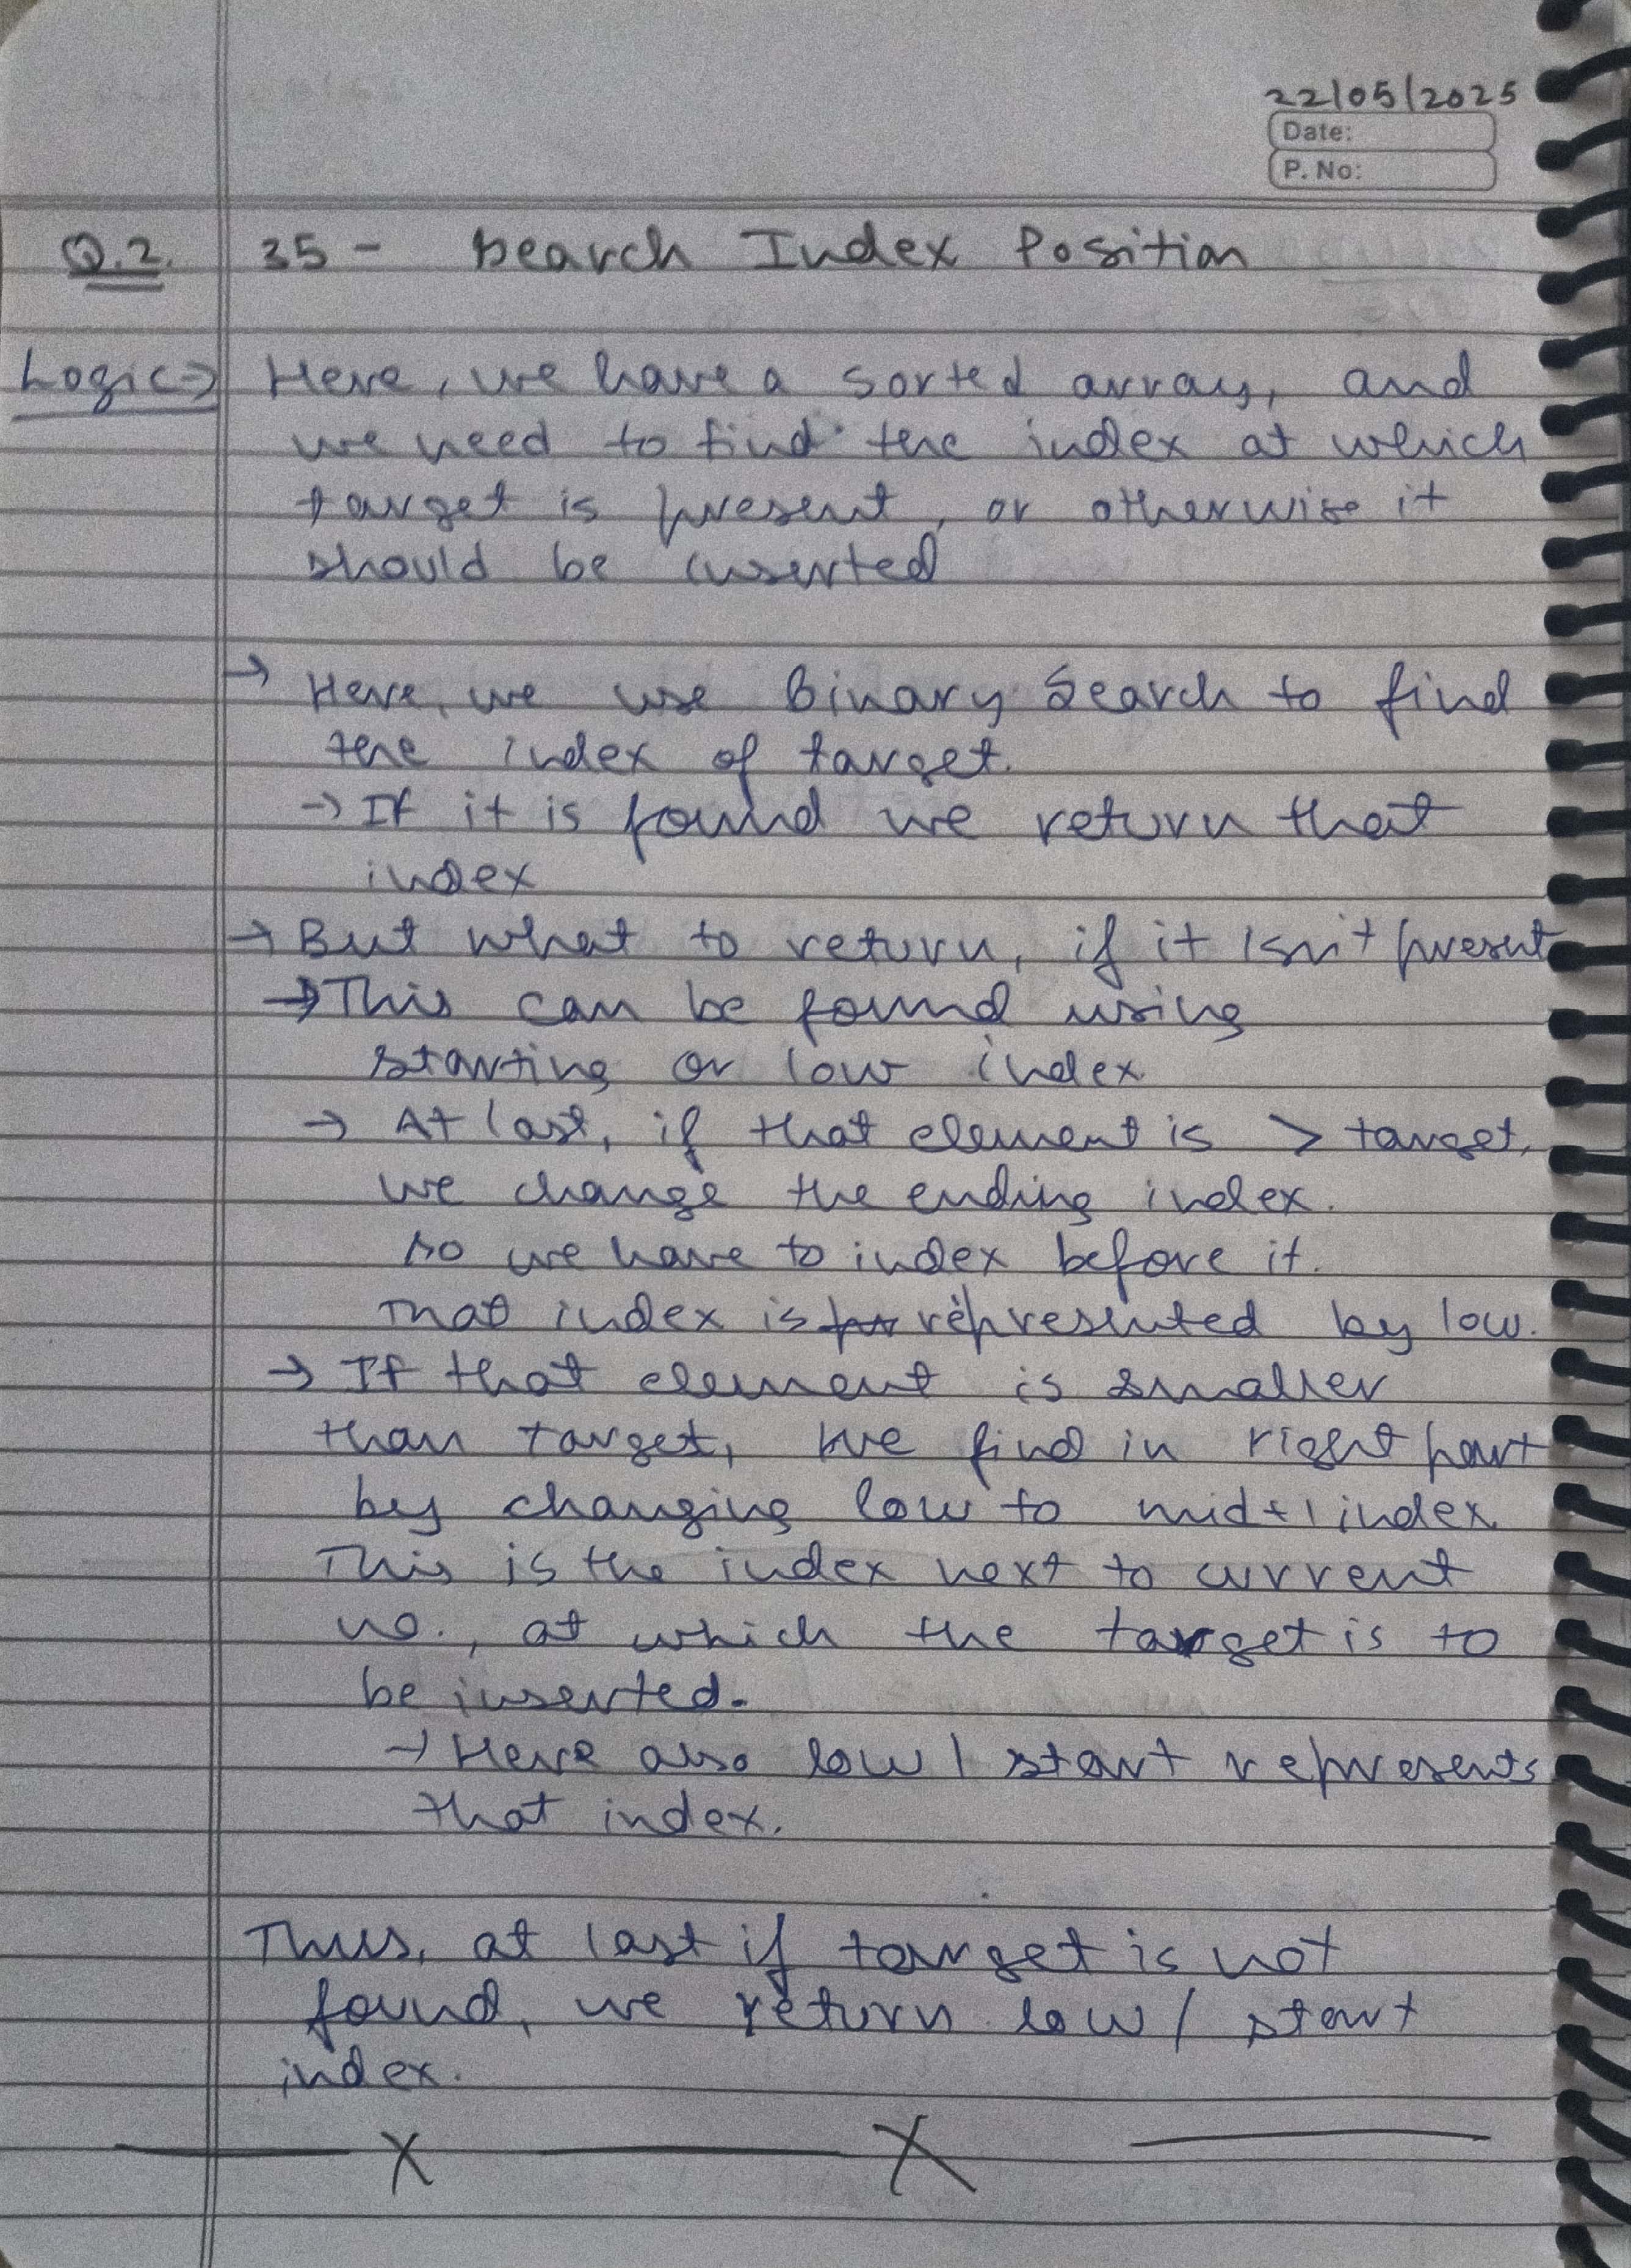 22/05/2025
Date:
P. No:
Q.2. 35 - Search Index Position
Logic → Here, we have a sorted array, and
we need to find the index at which
target is present, or otherwise it
should be inserted
→ Here, we use Binary Search to find
the index of target.
→ If it is found we return that
index
→ But what to return, if it isn't present
→ This can be found using
starting or low index
→ At last, if that element is > target,
we change the ending index.
so we have to index before it.
That index is represented by low.
→ If that element is smaller
than target, we find in right part
by changing low to mid+1 index
This is the index next to current
no., at which the target is to
be inserted.
→ Here also low / start represents
that index.
Thus, at last if target is not
found, we return low / start
index.
X X